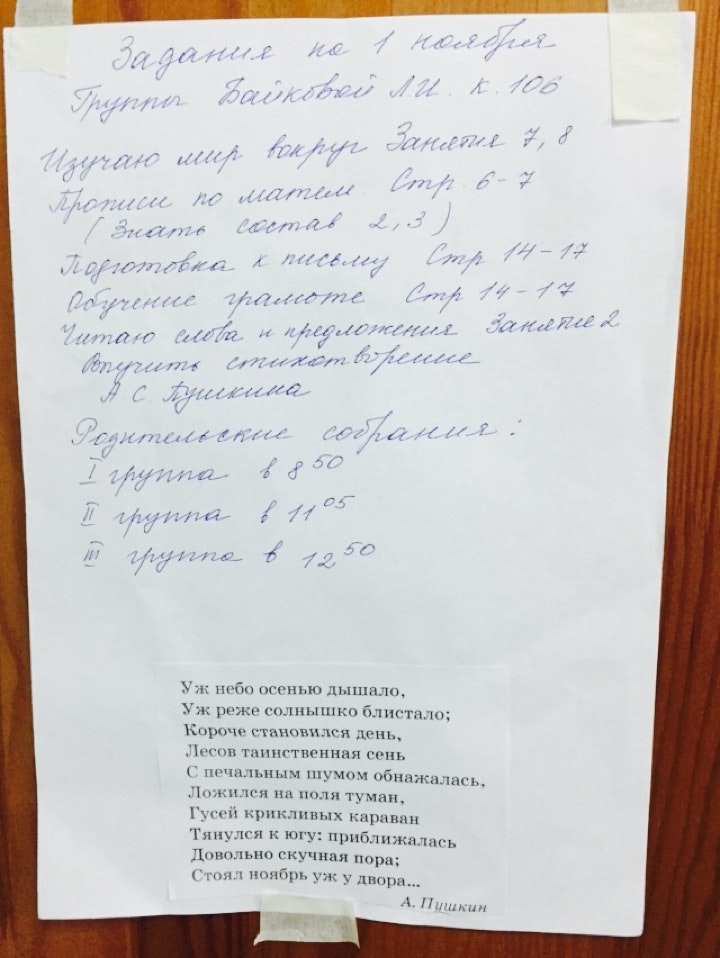 Задания на 1 ноября
Группы Байковой Л.И. к. 106
Изучаю мир вокруг Занятия 7, 8
Прописи по матем Стр. 6-7
(Знать состав 2, 3)
Подготовка к письму Стр 14-17
Обучение грамоте Стр 14-17
Читаю слова и предложения Занятие 2
Выучить стихотворение
А С Пушкина
Родительские собрания:
I группа в 8 50
II группа в 11 05
III группа в 12 50
Уж небо осенью дышало,
Уж реже солнышко блистало;
Короче становился день,
Лесов таинственная сень
С печальным шумом обнажалась,
Ложился на поля туман,
Гусей крикливых караван
Тянулся к югу: приближалась
Довольно скучная пора;
Стоял ноябрь уж у двора...
А. Пушкин